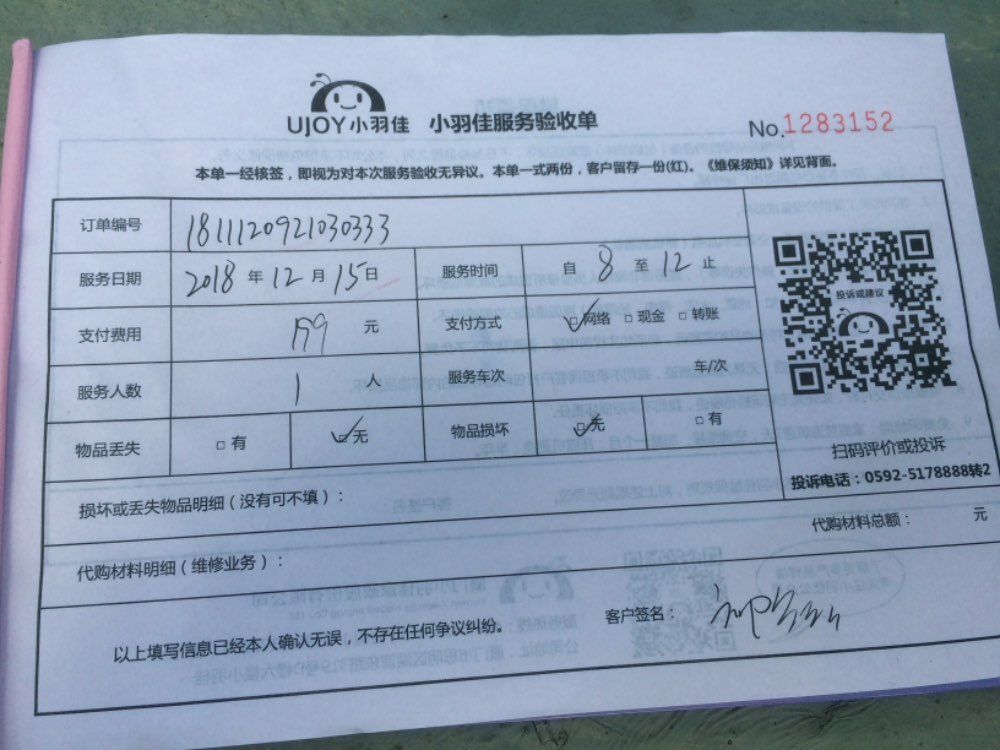 UJOY小羽佳 小羽佳服务验收单
No.1283152
本单一经核签，即视为对本次服务验收无异议。本单一式两份，客户留存一份(红)。《维保须知》详见背面。
订单编号 1811120921030333
服务日期 2018 年 12 月 15 日 服务时间 自 8 至 12 止
投诉或建议
支付费用 199 元 支付方式 ☑网络 □现金 □转账
服务人数 1 人 服务车次 车/次
物品丢失 □有 ☑无 物品损坏 ☑无 □有
扫码评价或投诉
投诉电话：0592-5178888转2
损坏或丢失物品明细（没有可不填）：
代购材料总额： 元
代购材料明细（维修业务）：
以上填写信息已经本人确认无误，不存在任何争议纠纷。 客户签名：